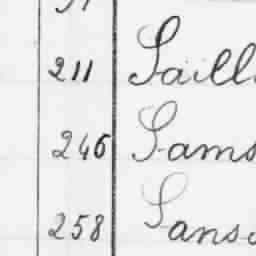 211 Saill
246 Sams
258 Sans